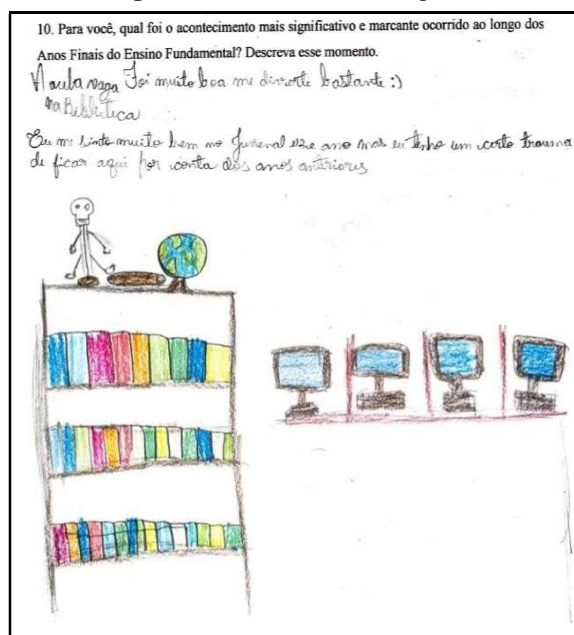 10. Para você, qual foi o acontecimento mais significativo e marcante ocorrido ao longo dos
Anos Finais do Ensino Fundamental? Descreva esse momento.
A aula vaga foi muito boa me diverte bastante :)
na Biblioteca
Eu me sinto muito bem no Juvenal esse ano mas eu tenho um certo trauma
de ficar aqui por conta dos anos anteriores